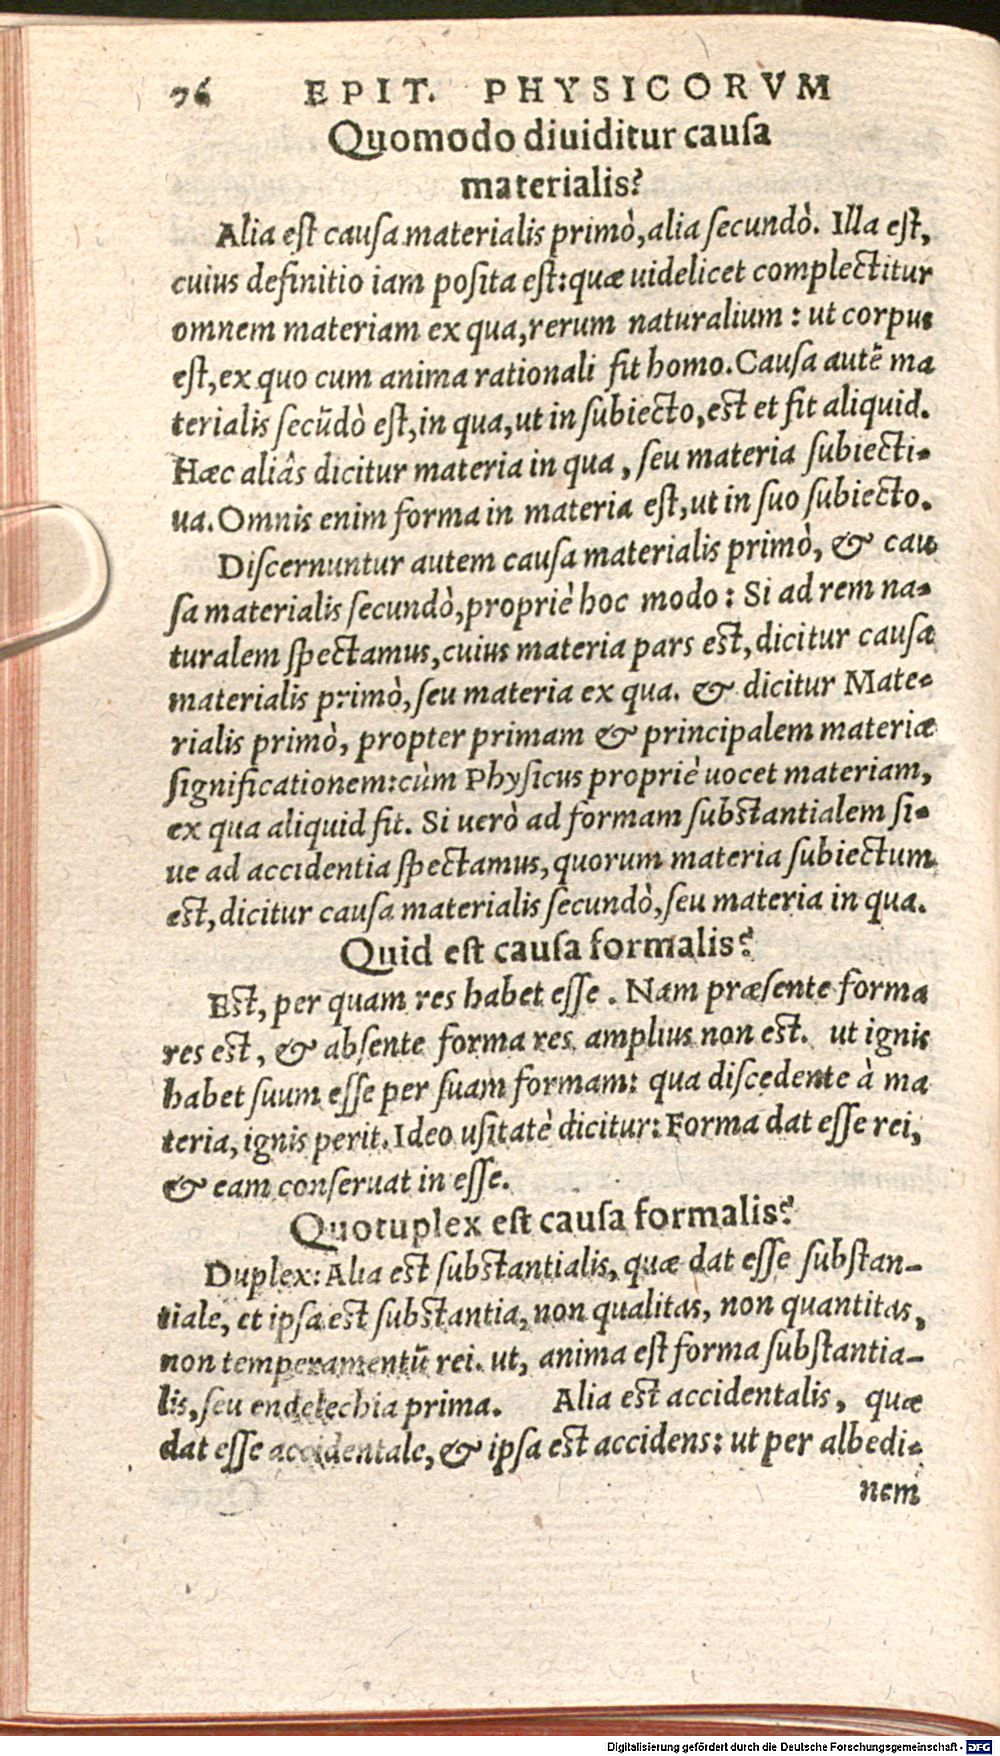 76 EPIT. PHYSICORVM
Quomodo diuiditur cauſa
materialis?
Alia eſt cauſa materialis primò, alia ſecundò. Illa eſt,
cuius definitio iam poſita eſt: quæ uidelicet complectitur
omnem materiam ex qua, rerum naturalium: ut corpus
eſt, ex quo cum anima rationali fit homo. Cauſa autē ma
terialis ſecūdò eſt, in qua, ut in ſubiecto, est et fit aliquid.
Hæc aliâs dicitur materia in qua, ſeu materia ſubiecti-
ua. Omnis enim forma in materia eſt, ut in ſuo ſubiecto.
Diſcernuntur autem cauſa materialis primò, & cau
ſa materialis ſecundò, propriè hoc modo: Si ad rem na-
turalem ſpectamus, cuius materia pars est, dicitur cauſa
materialis primò, ſeu materia ex qua. & dicitur Mate-
rialis primò, propter primam & principalem materiæ
ſignificationem: cùm Phyſicus propriè uocet materiam,
ex qua aliquid fit. Si uerò ad formam ſubstantialem ſi-
ue ad accidentia ſpectamus, quorum materia ſubiectum
est, dicitur cauſa materialis ſecundò, ſeu materia in qua.
Quid eſt cauſa formalis?
Est, per quam res habet eſſe. Nam præſente forma
res est, & abſente forma res amplius non est. ut ignis
habet ſuum eſſe per ſuam formam: qua diſcedente à ma
teria, ignis perit. Ideo uſitatè dicitur: Forma dat eſſe rei,
& eam conſeruat in eſſe.
Quotuplex eſt cauſa formalis?
Duplex: Alia est ſubstantialis, quæ dat eſſe ſubſtan-
tiale, et ipſa est ſubstantia, non qualitas, non quantitas,
non temperamentū rei. ut, anima eſt forma ſubſtantia-
lis, ſeu endelechia prima. Alia est accidentalis, quæ
dat eſſe accidentale, & ipſa est accidens: ut per albedi-
nem
Digitalisierung gefördert durch die Deutsche Forschungsgemeinschaft - DFG